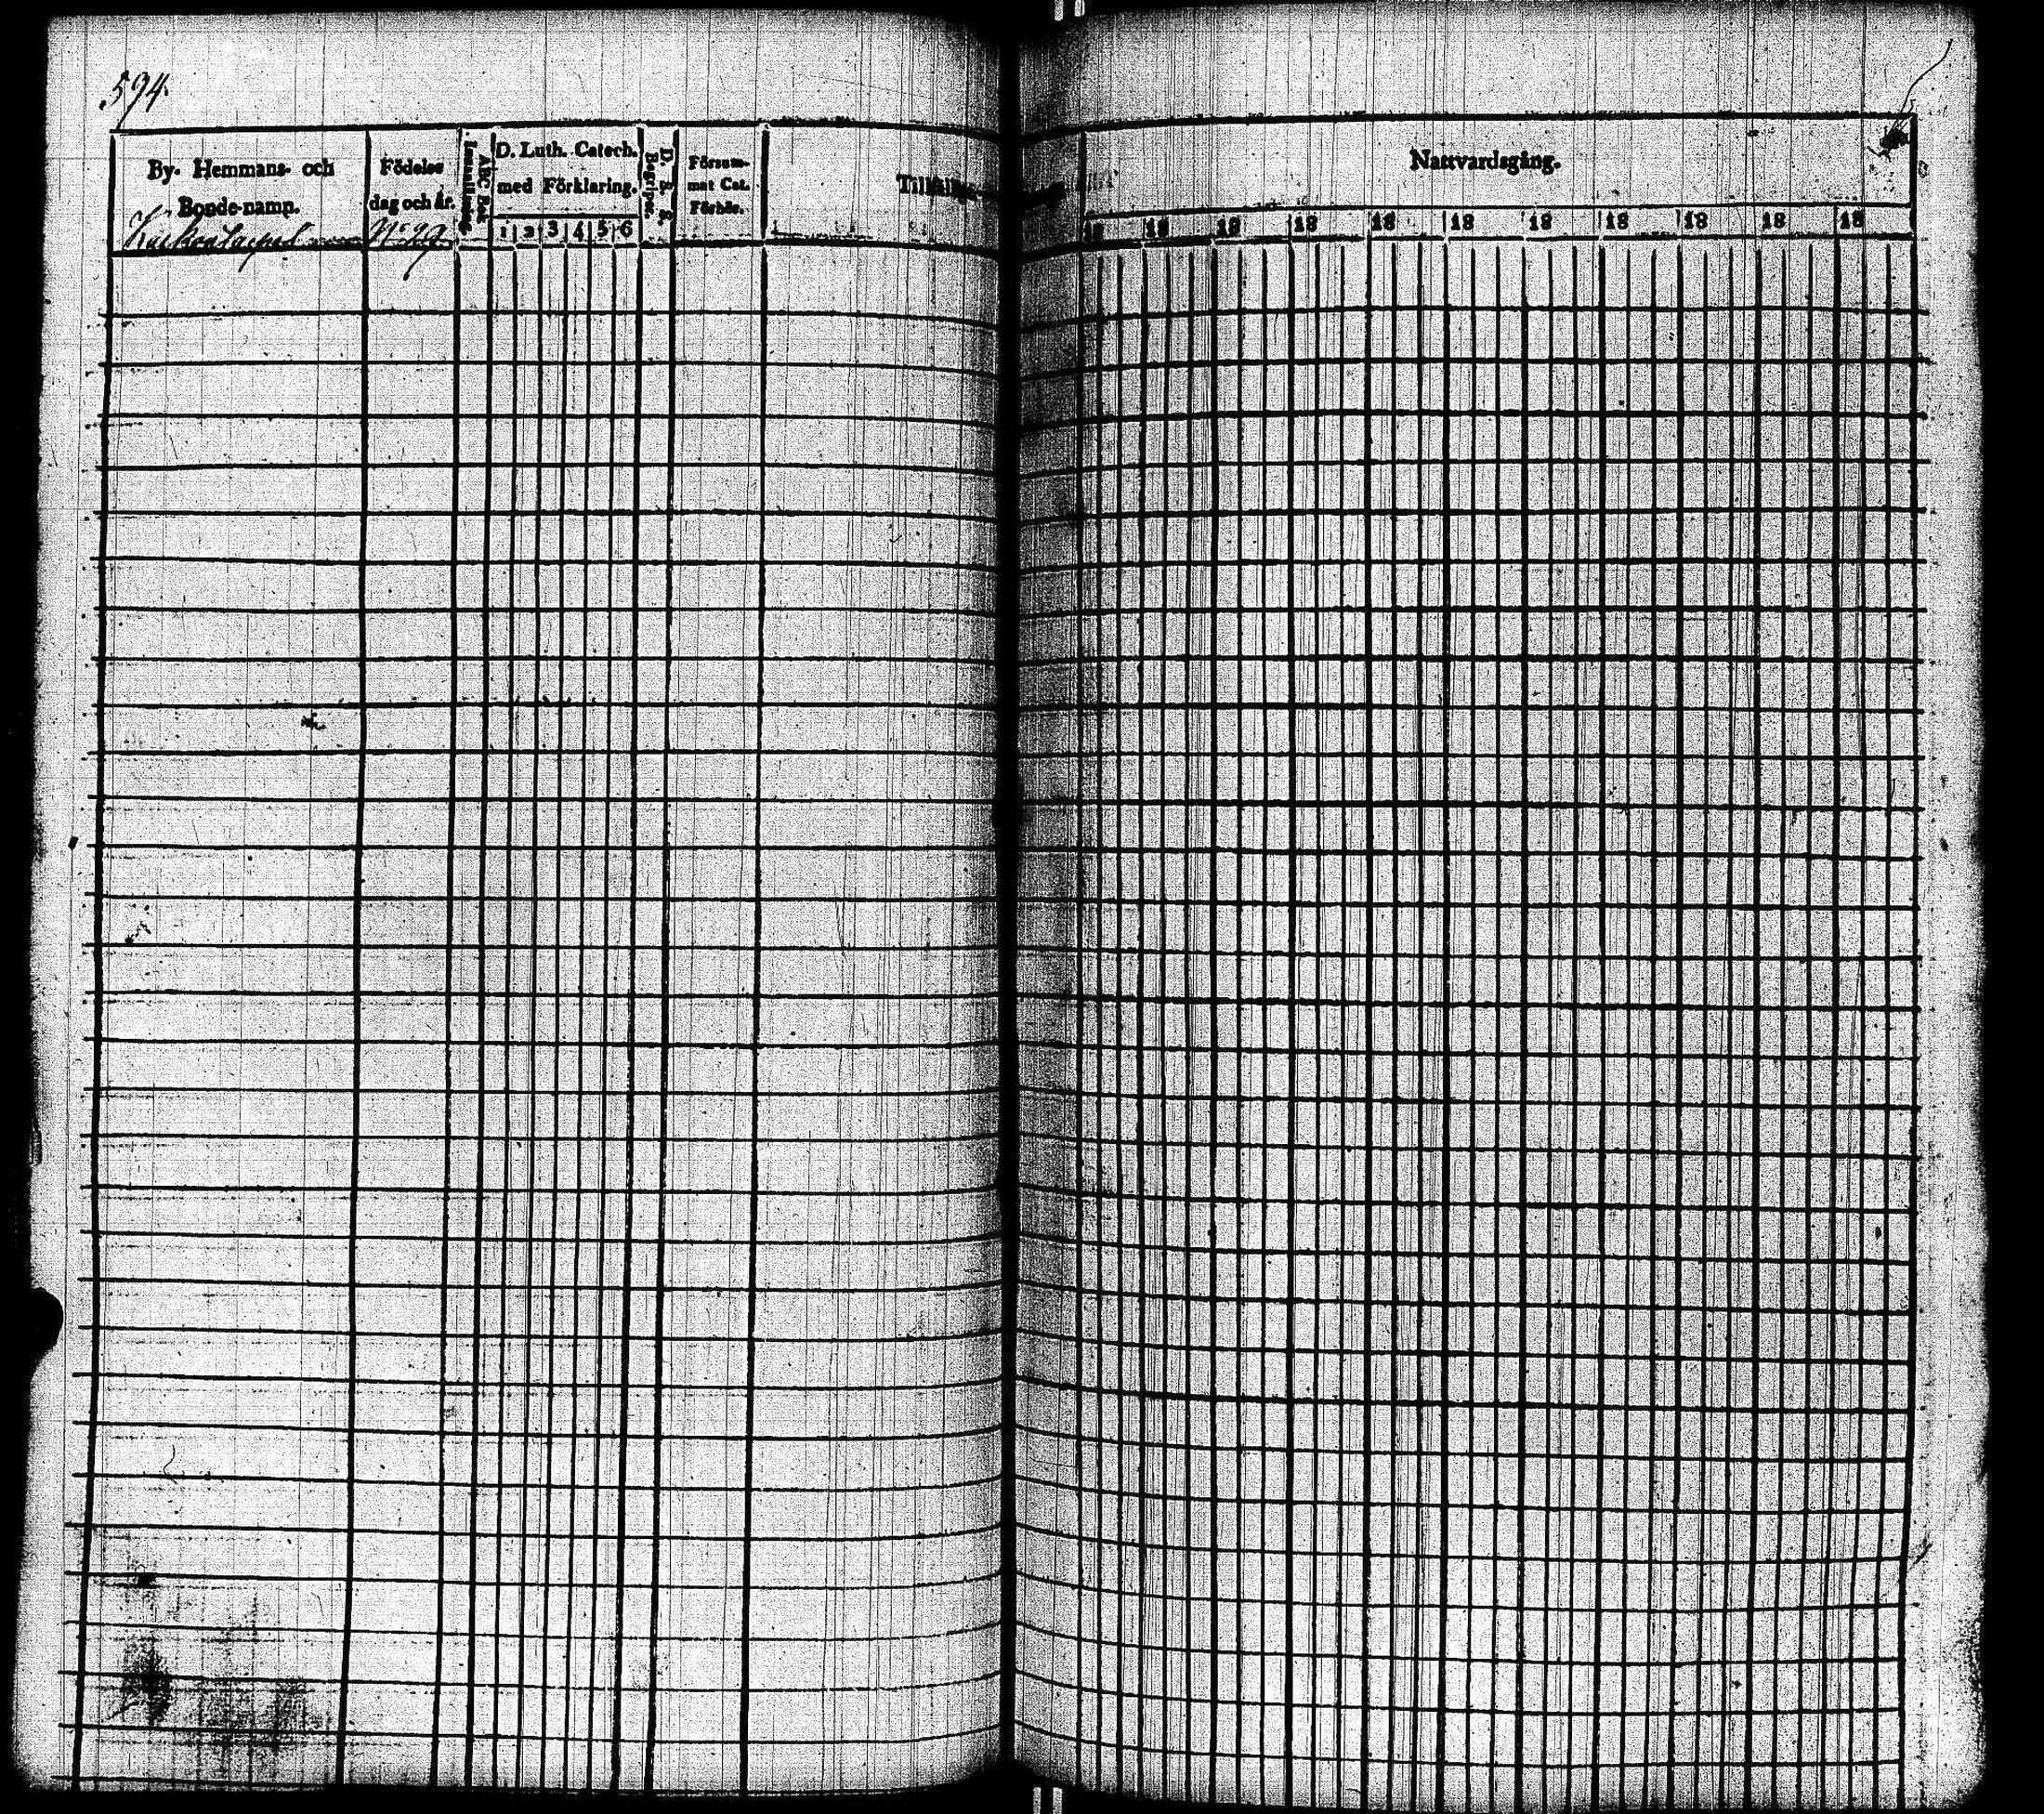 594.
By- Hemmans- och
Bonde-namn.
Födelse
dag och år.
No 29.
ABC Bok
Innanläsning
D. Luth. Catech.
med Förklaring.
1 2 3 4 5 6
D. S. S.
Begripa.
Försum-
mat Cat.
Förhör.
Nattvardsgång.
18 18 18 18 18 18 18 18 18 18 18